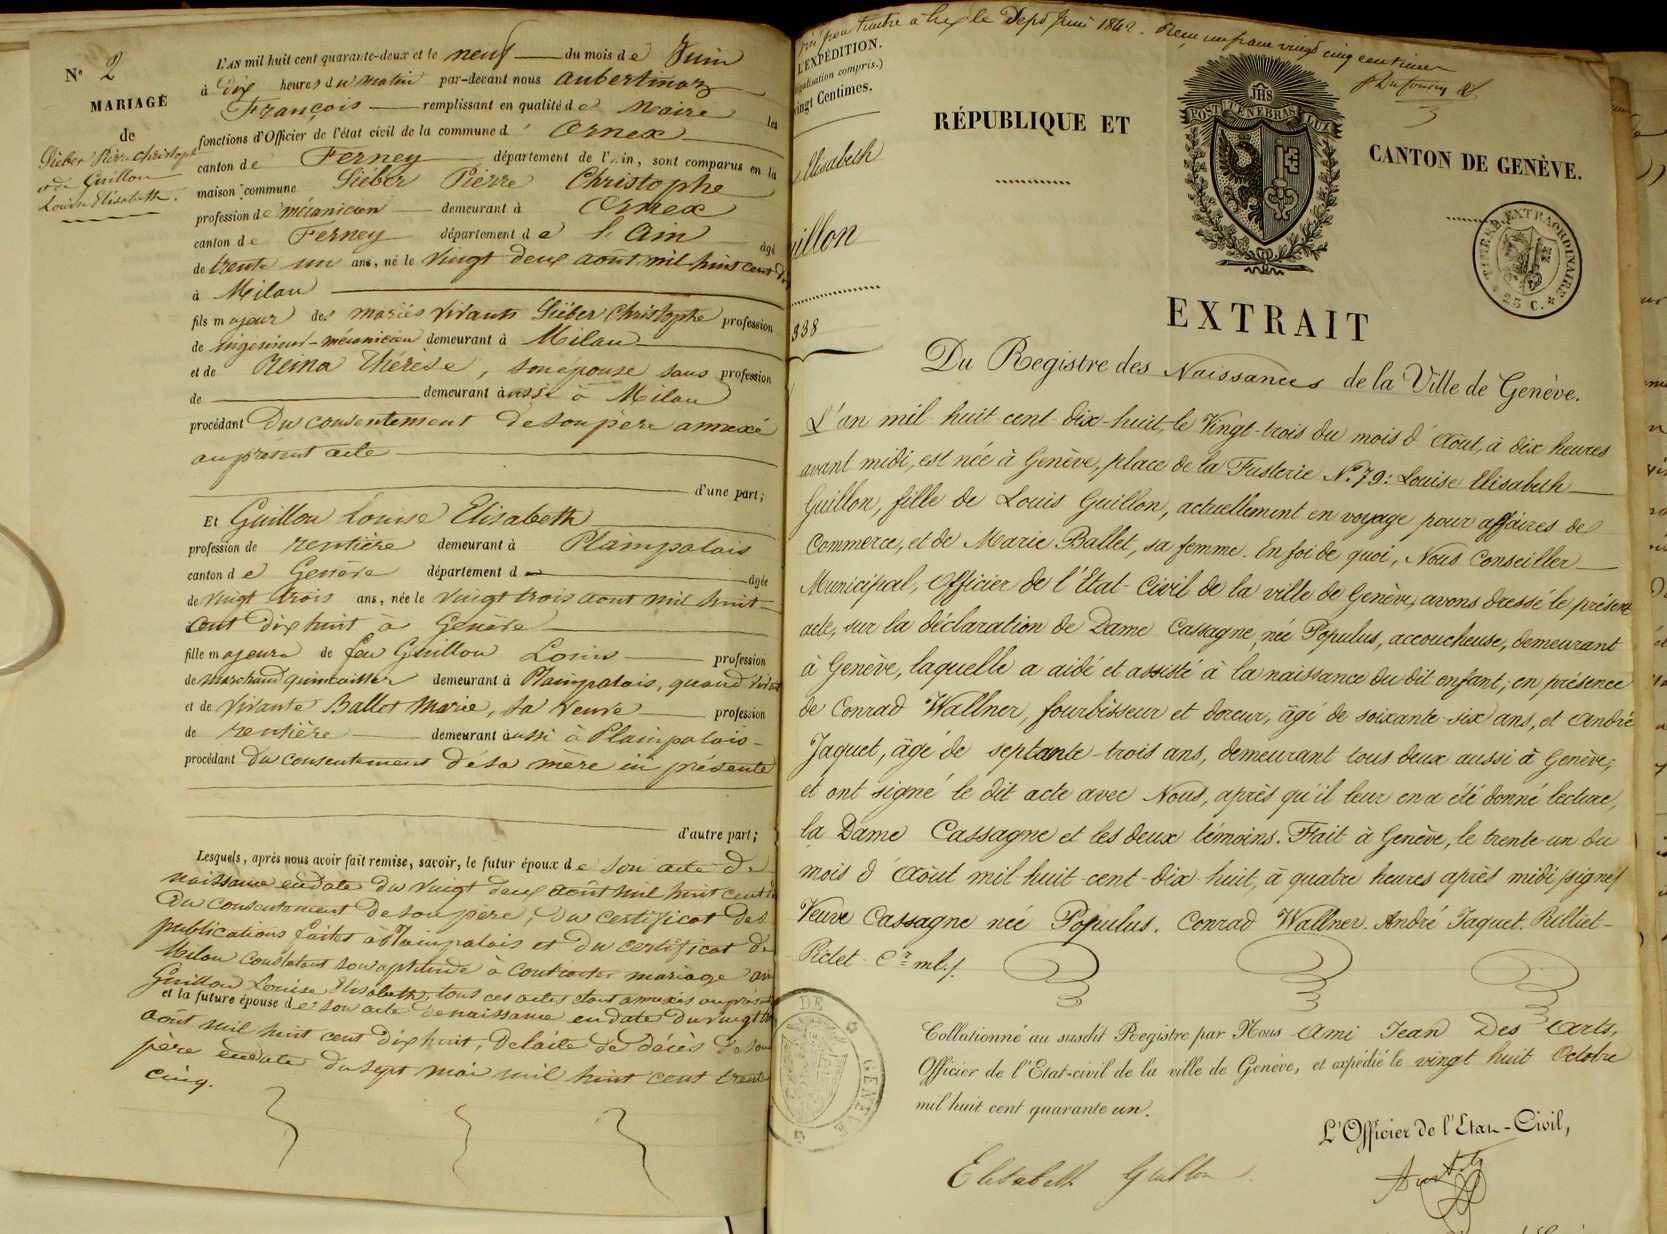 Nº 2
MARIAGE
de
Siéber Pierre Christoph
et de Guillon
Louise Elisabeth.
L'AN mil huit cent quarante-deux et le neuf du mois de Juin
à dix heures du matin par-devant nous Aubertin
François remplissant en qualité de Maire les
fonctions d'Officier de l'état civil de la commune d' Ornex
canton de Ferney département de l'Ain, sont comparus en la
maison commune Siéber Pierre Christophe
profession de mécanicien demeurant à Ornex
canton de Ferney département de l'Ain âgé
de trente un ans, né le vingt deux août mil huit cent
à Milan
fils majeur des mariés vivants Siéber Christophe profession
de ingénieur-mécanicien demeurant à Milan
et de Reina Thérèse, son épouse sans profession
de demeurant aussi à Milan
procédant du consentement de son père annexé
au présent acte
d'une part;
Et Guillon Louise Elisabeth
profession de rentière demeurant à Plainpalais
canton de Genève département d âgée
de vingt trois ans, née le vingt trois août mil huit
cent dix huit à Genève
fille majeure de feu Guillon Louis profession
de marchand quincailler demeurant à Plainpalais, quand
et de vivante Ballet Marie, sa veuve profession
de rentière demeurant aussi à Plainpalais
procédant du consentement de sa mère ici présente
d'autre part;
Lesquels, après nous avoir fait remise, savoir, le futur époux de son acte de
naissance en date du vingt deux août mil huit cent
du consentement de son père, du certificat des
publications faites à Plainpalais et du certificat de
Milan constatant son aptitude à contracter mariage
Guillon Louise Elisabeth, tous ces actes étant annexés
et la future épouse de son acte de naissance en date du vingt
août mil huit cent dix huit, de l'acte de décès de son
père en date du sept mai mil huit cent trente
cinq.
le Sept Juin 1842. Reçu un franc vingt cinq centimes
L'EXPÉDITION.
compris.)
Vingt Centimes.
Elisabeth
illon
338
RÉPUBLIQUE ET
CANTON DE GENÈVE.
IHS
POST TENEBRAS LUX
TIMBRE EXTRAORDINAIRE
25 C.
EXTRAIT
Du Registre des Naissances de la Ville de Genève.
L'an mil huit cent dix-huit, le Vingt-trois du mois d'Août, à dix heures
avant midi, est née à Genève, place de la Fusterie Nº 79: Louise Elisabeth
Guillon, fille de Louis Guillon, actuellement en voyage pour affaires de
Commerce, et de Marie Ballet, sa femme. En foi de quoi, Nous Conseiller
Municipal, Officier de l'Etat-Civil de la ville de Genève, avons dressé le présent
acte, sur la déclaration de Dame Cassagne née Populus, accoucheuse, demeurant
à Genève, laquelle a aidé et assisté à la naissance du dit enfant; en présence
de Conrad Wallner, fourbisseur et doreur, âgé de soixante-six ans, et André
Jaquet, âgé de septante-trois ans, demeurant tous deux aussi à Genève;
et ont signé le dit acte avec Nous, après qu'il leur en a été donné lecture,
la Dame Cassagne et les deux témoins. Fait à Genève, le trente-un du
mois d'Août mil huit-cent-dix-huit, à quatre heures après midi, signé/
Veuve Cassagne née Populus. Conrad Wallner. André Jaquet. Rilliet-
Pictet Cr. ml./.
DE GENÈVE
Collationné au susdit Registre par Nous Ami Jean Des Arts,
Officier de l'Etat-civil de la ville de Genève, et expédié le vingt huit Octobre
mil huit cent quarante un.
L'Officier de l'Etat-Civil,
Elisabeth Guillon